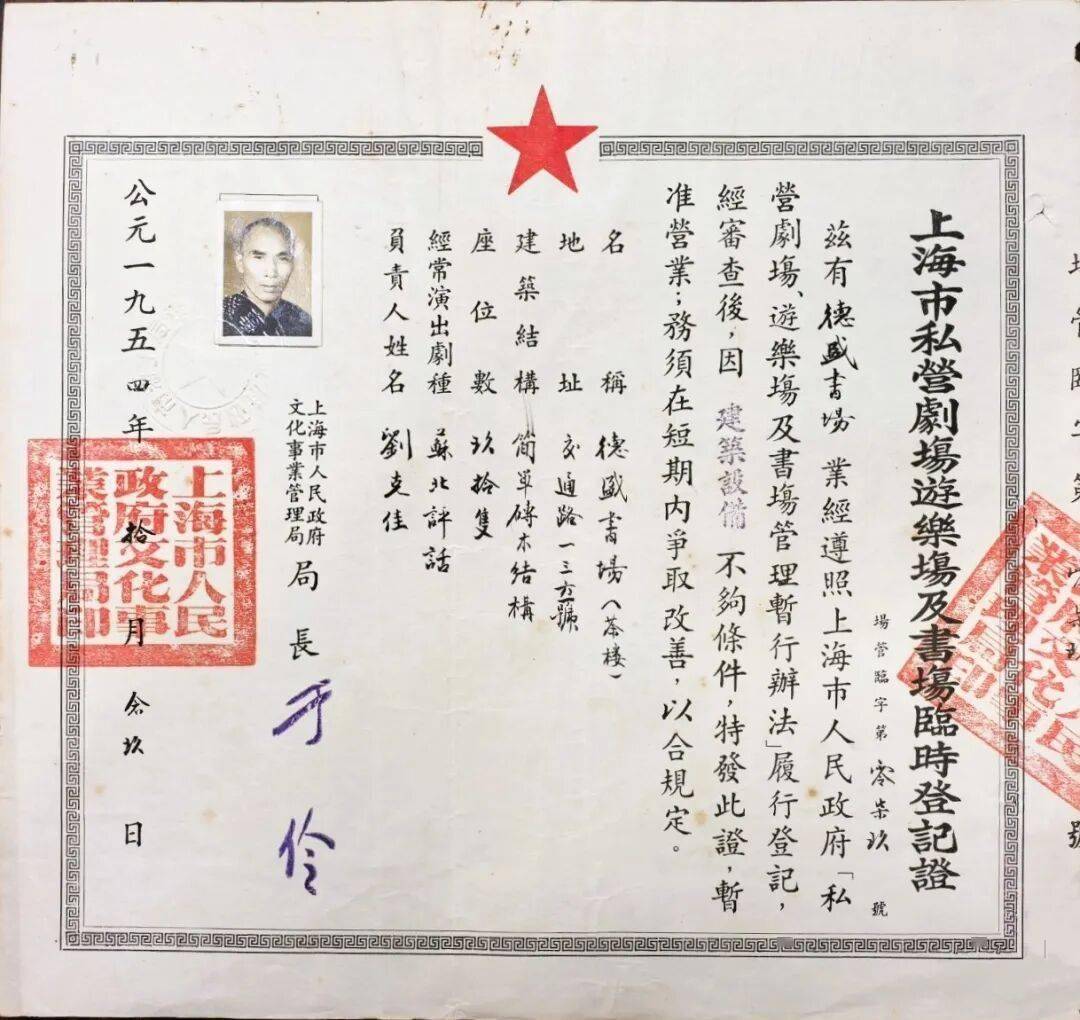 上海市私營劇場遊樂場及書場臨時登記證
場管臨字第 零柒玖 號
茲有 德盛書場 業經遵照上海市人民政府「私
營劇場、遊樂場及書場管理暫行辦法」履行登記，
經審查後，因 建築設備 不夠條件，特發此證，暫
准營業；務須在短期內爭取改善，以合規定。
名稱 德盛書場（茶樓）
地址 交通路一三六號
建築結構 簡單磚木結構
座位數 玖拾隻
經常演出劇種 蘇北評話
負責人姓名 劉克佳
上海市人民政府
文化事業管理局
局長 于伶
公元一九五四年拾月念玖日
上海市人民
政府文化事
業管理局印